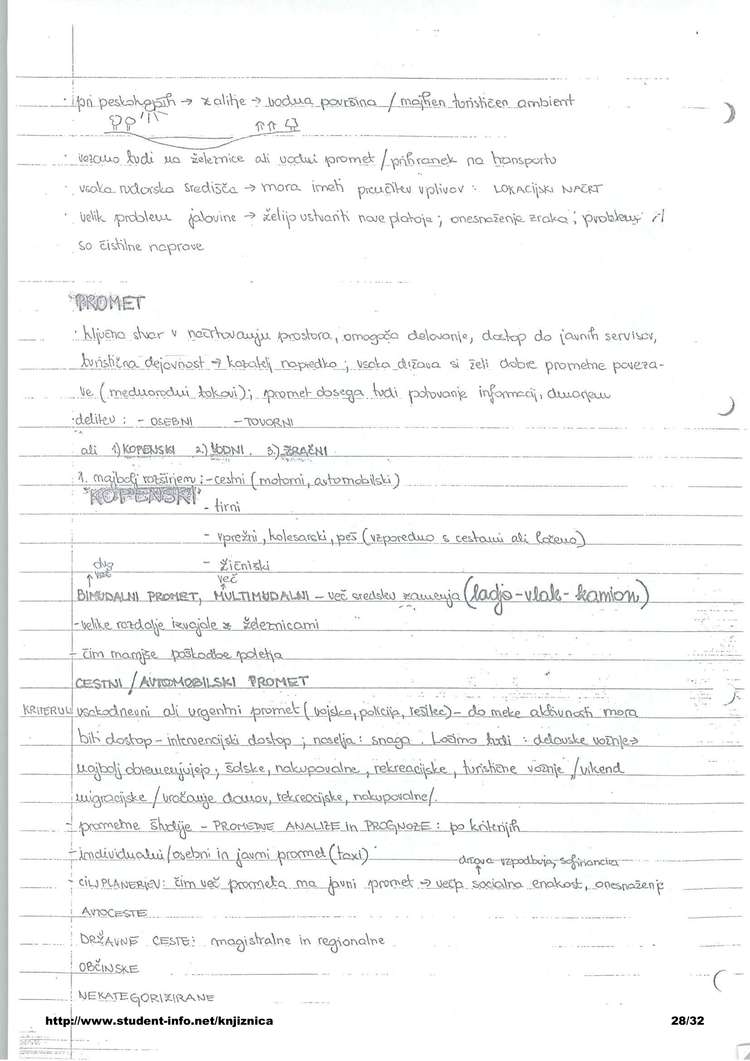 · pri peskokopih → zalitje → vodna površina / majhen turističen ambient
· vezano tudi na železnice ali vodni promet / prihranek na transportu
· vsaka rudarska središča → mora imeti preučitev vplivov : LOKACIJSKI NAČRT
· velik problem jalovine → želijo ustvariti nove platoje ; onesnaženje zraka ; problemy
so čistilne naprave
PROMET
· ključna stvar v načrtovanju prostora, omogoča delovanje, dostop do javnih servisov,
turistična dejavnost → kazatelj napredka ; vsaka država si želi dobre prometne poveza-
ve (mednarodni tokovi) ; promet dosega tudi potovanje informacij, denarjem
·delitev : - OSEBNI - TOVORNI
ali 1) KOPENSKI 2.) VODNI 3.) ZRAČNI
1. najbolj razširjen : - cestni (motorni, avtomobilski)
"KOPENSKI"
- tirni
- vprežni, kolesarski, peš (vzporedno s cestami ali ločeno)
- žičniski
več
BIMUDALNI PROMET, MULTIMUDALNI – več sredstev zamenja (ladja - vlak - kamion)
- velike razdalje izvajale z železnicami
- čim manjše poškodbe poletja
CESTNI / AVTOMOBILSKI PROMET
KRITERIJI vsakodnevni ali urgentni promet (vojska, policija, rešilec) – do neke aktivnosti mora
biti dostop – intervencijski dostop ; naselja : snaga . Ločimo tudi : delavske vožnje →
najbolj obremenjujejo ; šolske, nakupovalne, rekreacijske, turistične vožnje / vikend
migracijske / vračanje domov, rekreacijske, nakupovalne/.
- prometne študije – PROMETNE ANALIZE in PROGNOZE : po kriterijih
- individualni / osebni in javni promet (taxi)
država vzpodbuja, sofinancira
- CILJ PLANERJEV : čim več prometa na javni promet → večja socialna enakost, onesnaženje
AVTOCESTE
DRŽAVNE CESTE : magistralne in regionalne
OBČINSKE
NEKATEGORIZIRANE
http://www.student-info.net/knjiznica 28/32